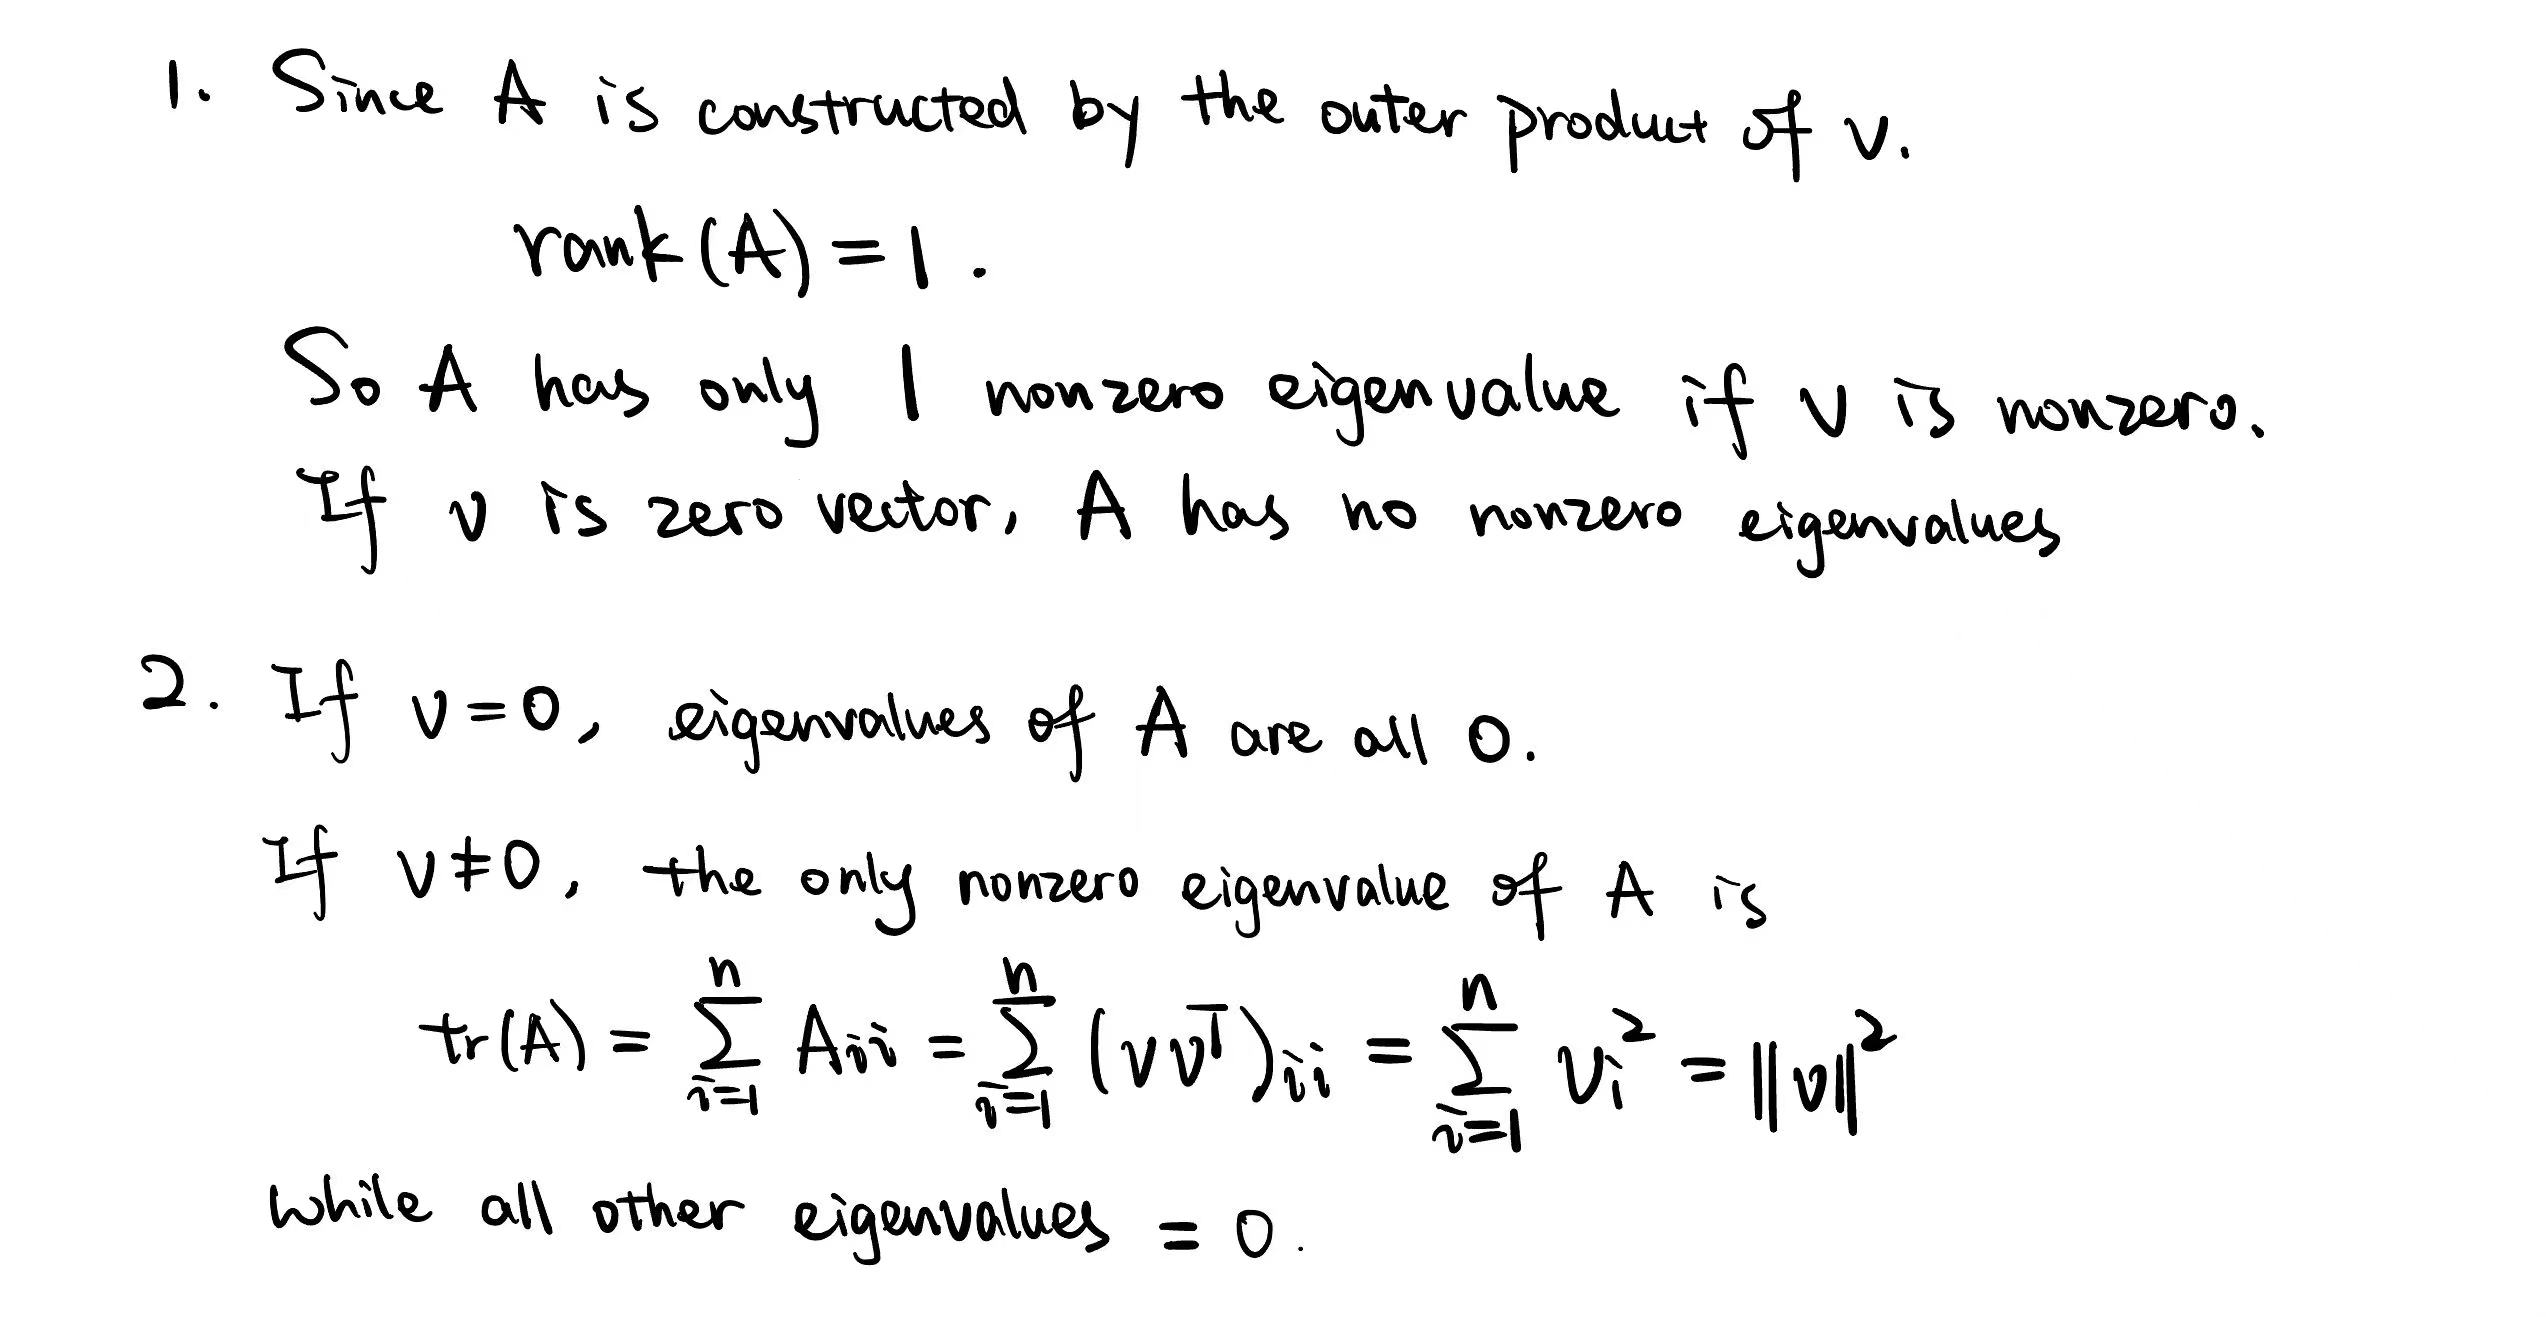 1. Since A is constructed by the outer product of v.
rank(A) = 1.
So A has only 1 nonzero eigenvalue if v is nonzero.
If v is zero vector, A has no nonzero eigenvalues
2. If v = 0, eigenvalues of A are all 0.
If v ≠ 0, the only nonzero eigenvalue of A is
tr(A) = \sum_{i=1}^{n} A_{ii} = \sum_{i=1}^{n} (vv^T)_{ii} = \sum_{i=1}^{n} v_i^2 = ||v||^2
while all other eigenvalues = 0.